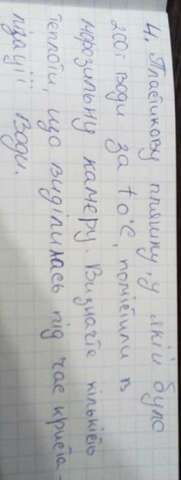 4. Пластикову пляшку, у якій було
200г води за t 0°C, помістили в
морозильну камеру. Визначте кількість
теплоти, що виділилась під час криста-
лізації води.